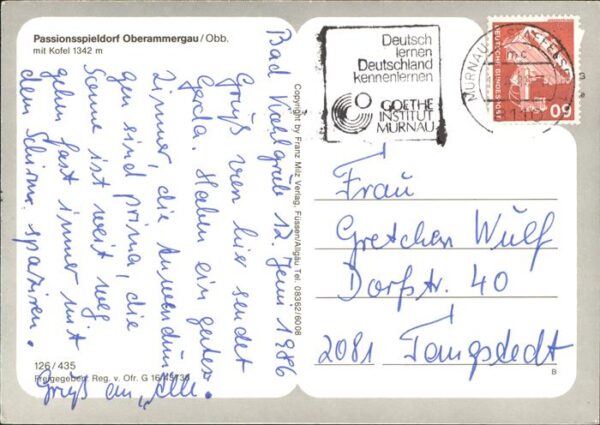 Passionsspieldorf Oberammergau/Obb.
mit Kofel 1342 m
Bad Kohlgrub 12. Juni 1986
Gruß von hier sendet
Gerda. Haben ein gutes
Zimmer, die Anwendun
gen sind prima, die
Sonne ist weit weg
gehn fast immer mit
dem Schirm spaziren.
Gruß an „Alle.
126/435
Freigegeben: Reg. v. Ofr. G 16/
Copyright by Franz Milz Verlag, Füssen/Allgäu Tel. 08362/6008
Deutsch
lernen
Deutschland
kennenlernen
GOETHE
INSTITUT
MURNAU
MURNAU
8110
DEUTSCHE BUNDESPOST
60
Frau
Gretchen Wulf
Dorfstr. 40
2081 Tangstedt
B